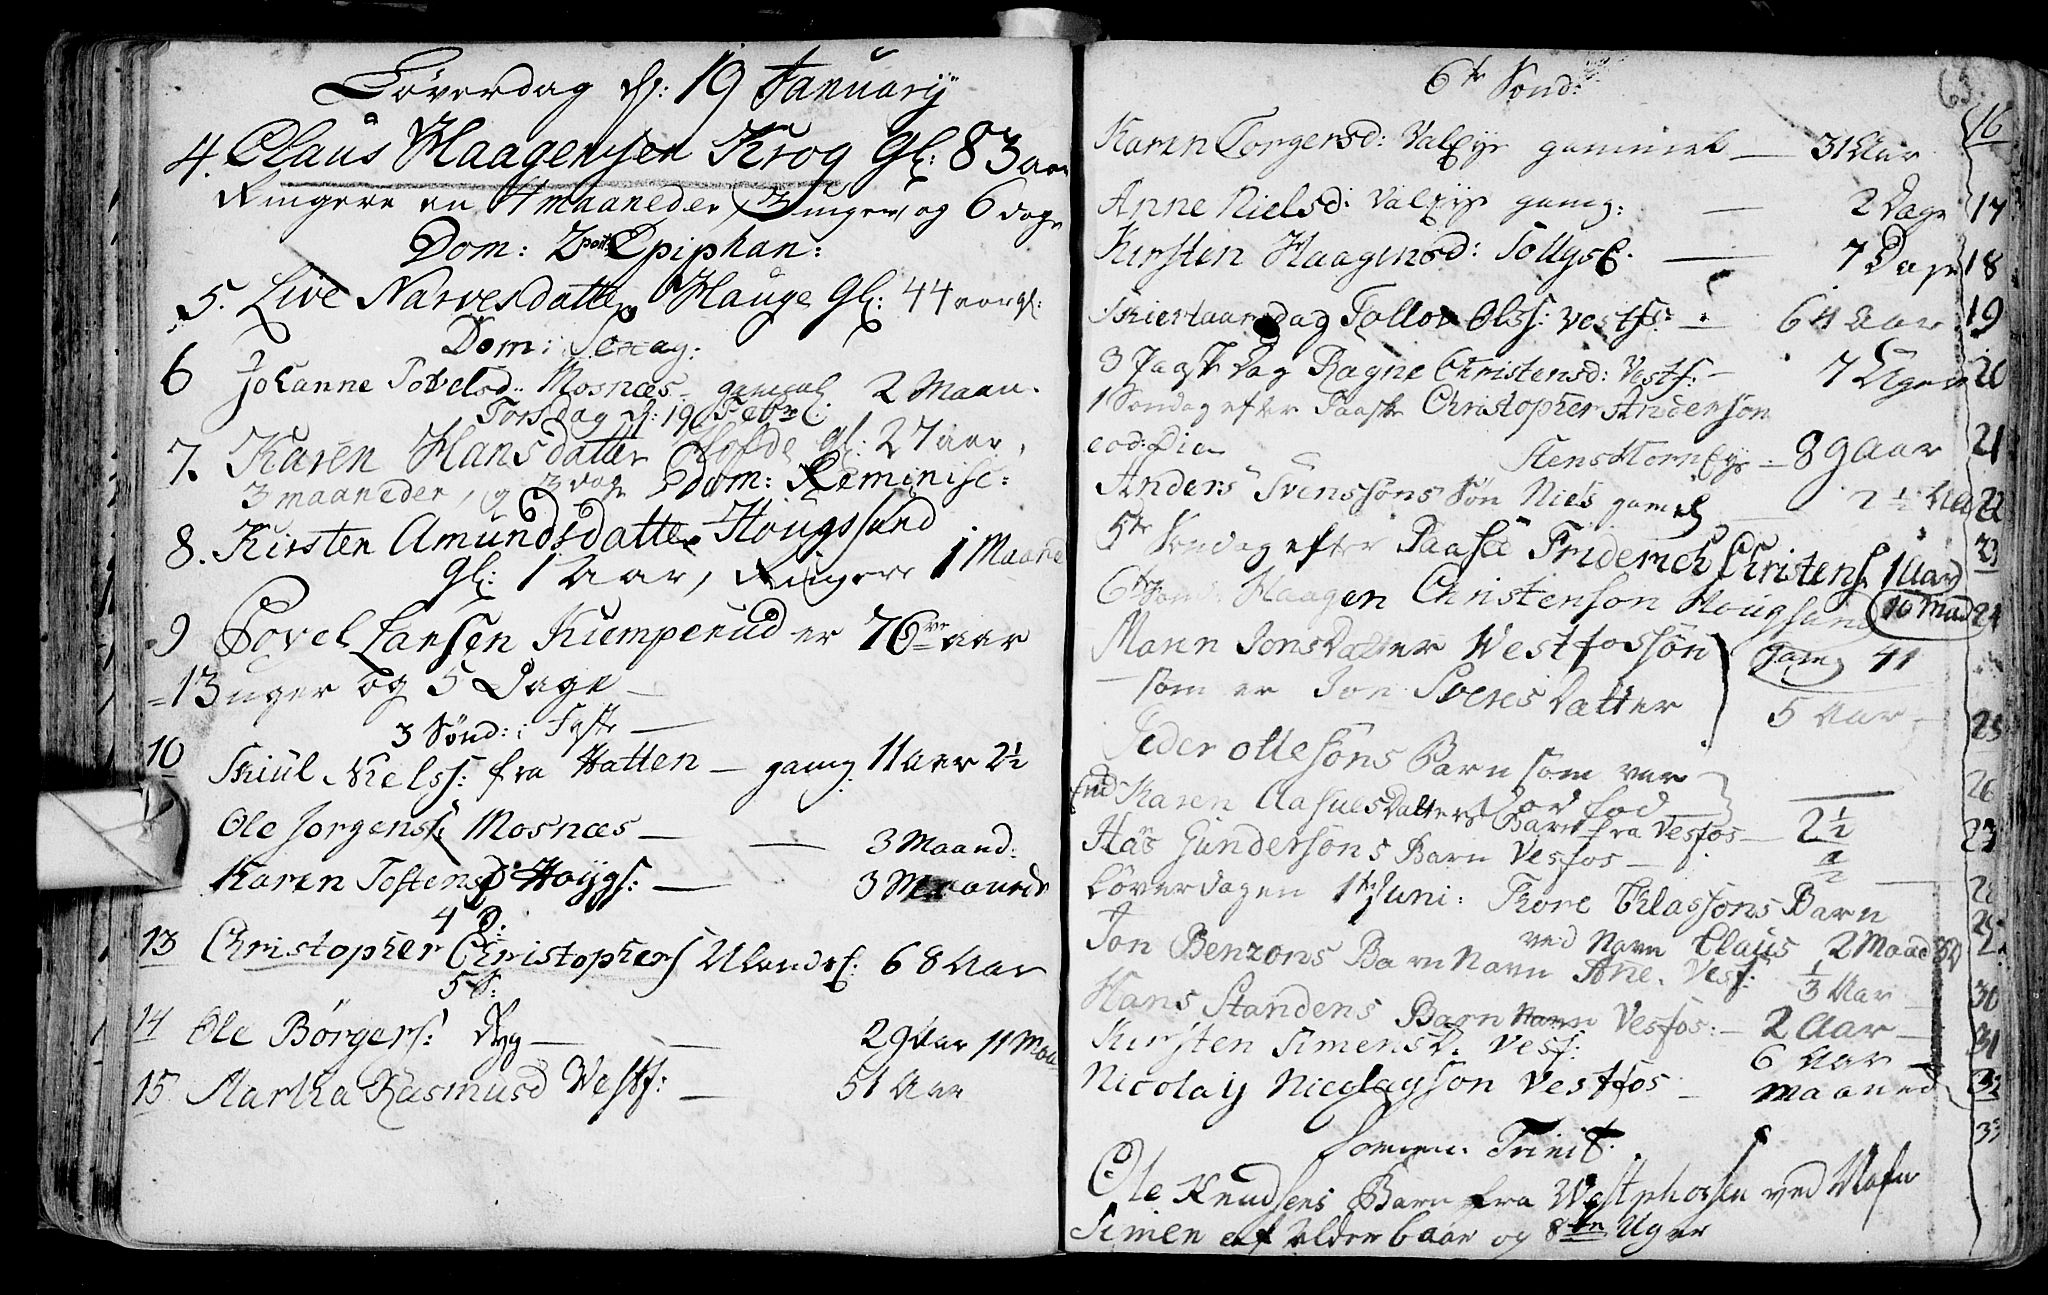 Löverdag d: 19 January
4. Claus Haagensen Krog Gl: 83 aar
Ringere en 4 maaneder, 3 uger, og 6 dage
Dom: 2 post Epiphan:
5. Live Narvesdatter Hauge Gl: 44 aar gl:
Dom: Sexag:
6 Johanne Povelsd: Mosnæs gamel 2 Maan.
Torsdag d: 19 Febr:
7. Karen Hansdatter Hofde gl: 27 aar,
3 maaneder, og 3 dage Dom: Reminisc:
8. Kirsten Amundsdatter Hougssund
gl: 1 Aar, Ringere 1 Maaned
9 Povel Larsen Kumperud er 76 aar
13 uger og 5 Dage
3 Sønd: i Faste
10 Skiul Nielss: fra Hatten gamg. 11 aar 2½
Ole Jorgenss: Mosnæs 3 Maand:
Karen Tostensd Høygs: 3 Maaneder
4 S:
13 Christopher Christophers Ulands: 68 Aar
5 S:
14 Ole Börgers: 29 Aar 11 Maa
15 Martha Rasmusd Vestf: 51 Aar
63.
6te Sönd:
Karen Torgersd: gammel 31 Aar 16
Anne Nielsd: gamg: 2 Dage 17
Kirsten Haagensd: 7 Dage 18
Skiertaarsdag Tollov Olss: Vestfs: 64 Aar 19
3 Paaske Dag Ragne Christensd: Vestf: 7 Uger 20
1 Söndag efter Paaske Christopher Anderson
eod: Die 89 Aar 21
Anders Svenssöns Sön Niels gamel 2½ 22
5te Söndag efter Paaske Friderich Christens. 1 Aar 23
6te Sönd: Haagen Christenson Hougsund 10 Maa 24
Maren Jonsdatter Vestfossön gamg 41
som er Jon Svens Datter 5 Aar 25
Peder Ollesöns Barn som var
Karen Aasulsdatters Barn fra Vesfos 2½ 26
Hans Gundersöns Barn Vesfos ½ 23
Löverdagen 1te Juni: Tore Klassöns Barn 28
ved Navn Claus 2 Maad
Jon Benzons Barn Navn Ane. Vesf: ⅓ Aar
Hans Standens Barn Navn Vesfos: 2 Aar 30
Kirsten Simensd. Vesf: 6 Aar 31
Nicolaij Nicolayson Vestfos Maaned 32
33
Trinit:
Ole Knudsens Barn fra Westphossen ved Nafn
Simen af alder 6 aar og 8te Uger